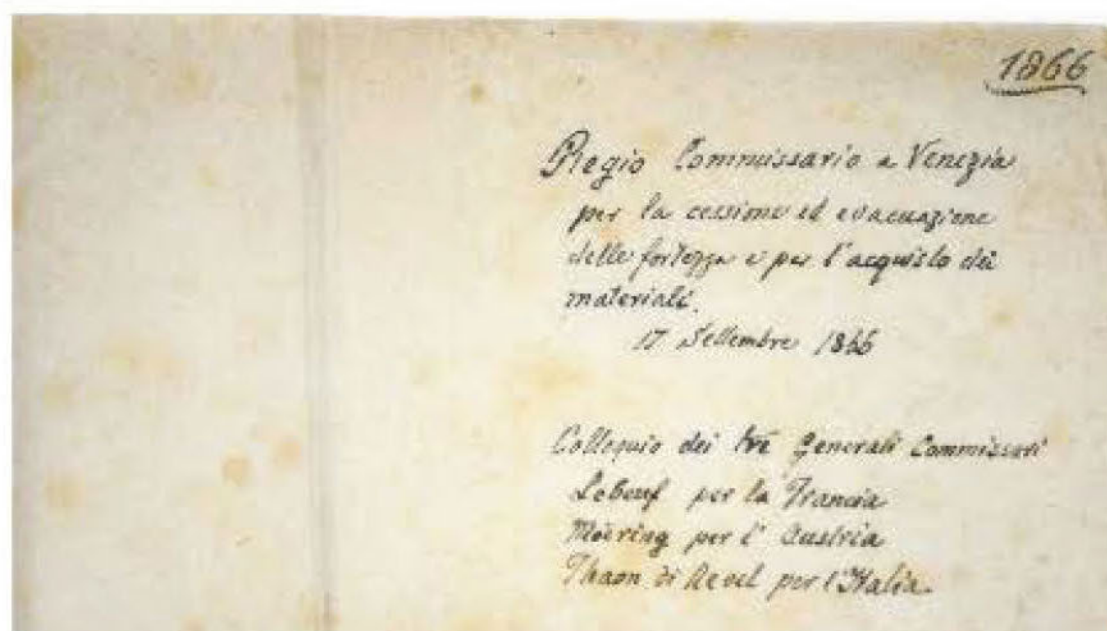 1866
Regio Commissario a Venezia
per la cessione ed evacuazione
delle fortezze e per l'acquisto dei
materiali.
17 Settembre 1866
Colloquio dei tre Generali Commissari
Lebeuf per la Francia
Moering per l'Austria
Thaon di Revel per l'Italia.